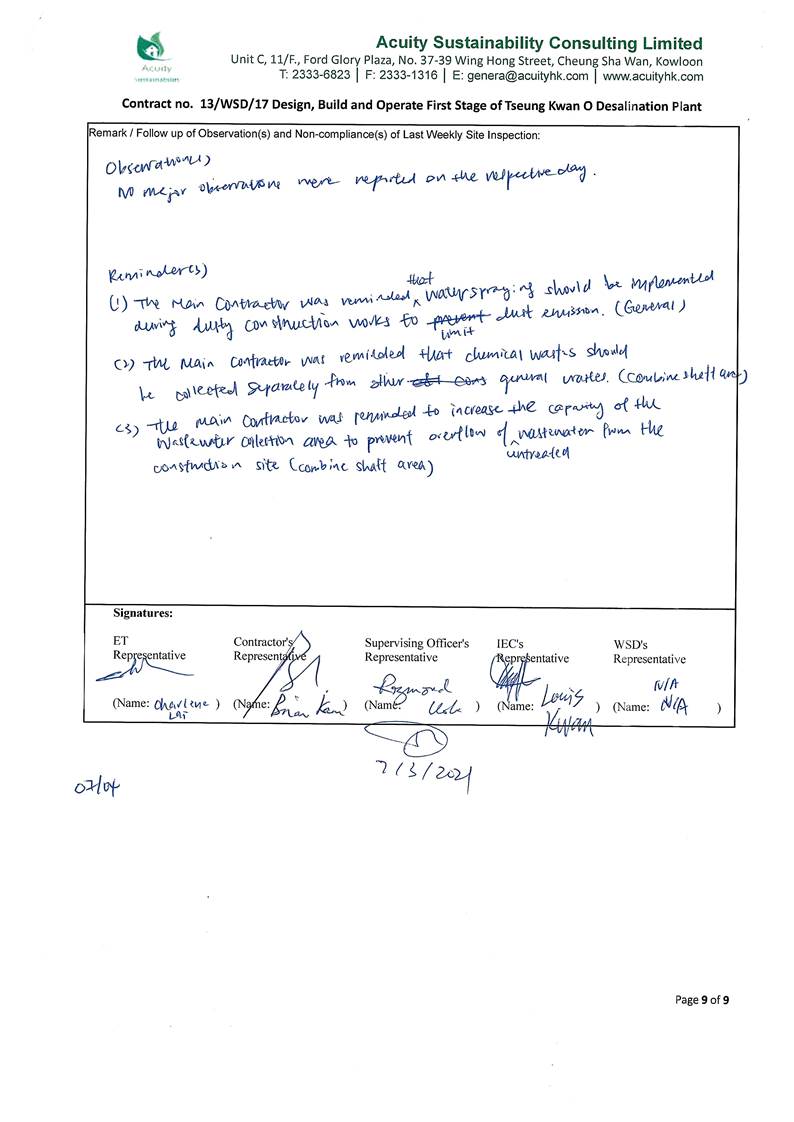 Acuity Sustainability Consulting Limited
Acuity
Sustainabilities
Unit C, 11/F., Ford Glory Plaza, No. 37-39 Wing Hong Street, Cheung Sha Wan, Kowloon
T: 2333-6823 | F: 2333-1316 | E: genera@acuityhk.com | www.acuityhk.com
Contract no. 13/WSD/17 Design, Build and Operate First Stage of Tseung Kwan O Desalination Plant
Remark / Follow up of Observation(s) and Non-compliance(s) of Last Weekly Site Inspection:
Observation(s)
No major observations were reported on the respective day.
Reminder(s)
(1) The Main Contractor was reminded that water spraying should be implemented
during dusty construction works to prevent limit dust emission. (General)
(2) The Main Contractor was reminded that chemical wastes should
be collected separately from other general wastes. (Combine shaft area)
(3) The Main Contractor was reminded to increase the capacity of the
wastewater collection area to prevent overflow of untreated wastewater from the
construction site (combine shaft area)
Signatures:
ET Representative
Contractor's Representative
Supervising Officer's Representative
IEC's Representative
WSD's Representative
N/A
(Name: Charlene LAI )
(Name: Brian Kam )
(Name: Raymond )
(Name: Louis Kwan )
(Name: N/A )
7/3/2021
07/04
Page 9 of 9